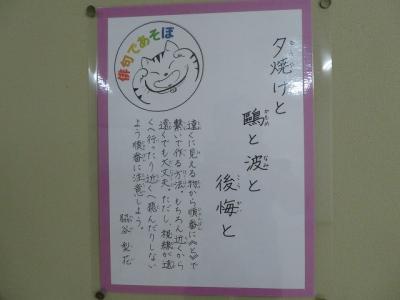 俳句であそぼ
夕焼けと
鷗と波と
後悔と
遠くに見える物から順番に《と》で
繋いで作る方法。もちろん近くから
遠くでも大丈夫。ただし、視線が遠
くへ行ったり近くへ飛んだりしない
よう順番に注意しよう。
脇谷 梨花